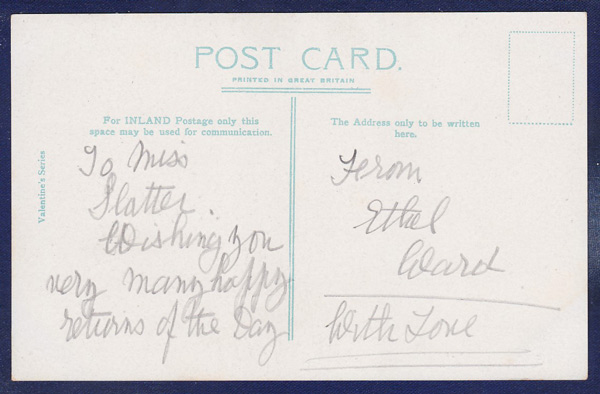 POST CARD.
PRINTED IN GREAT BRITAIN
For INLAND Postage only this
space may be used for communication.
The Address only to be written
here.
Valentine's Series
To Miss
Slatter.
Wishing you
very many happy
returns of the Day
From
Ethel
Ward
With Love